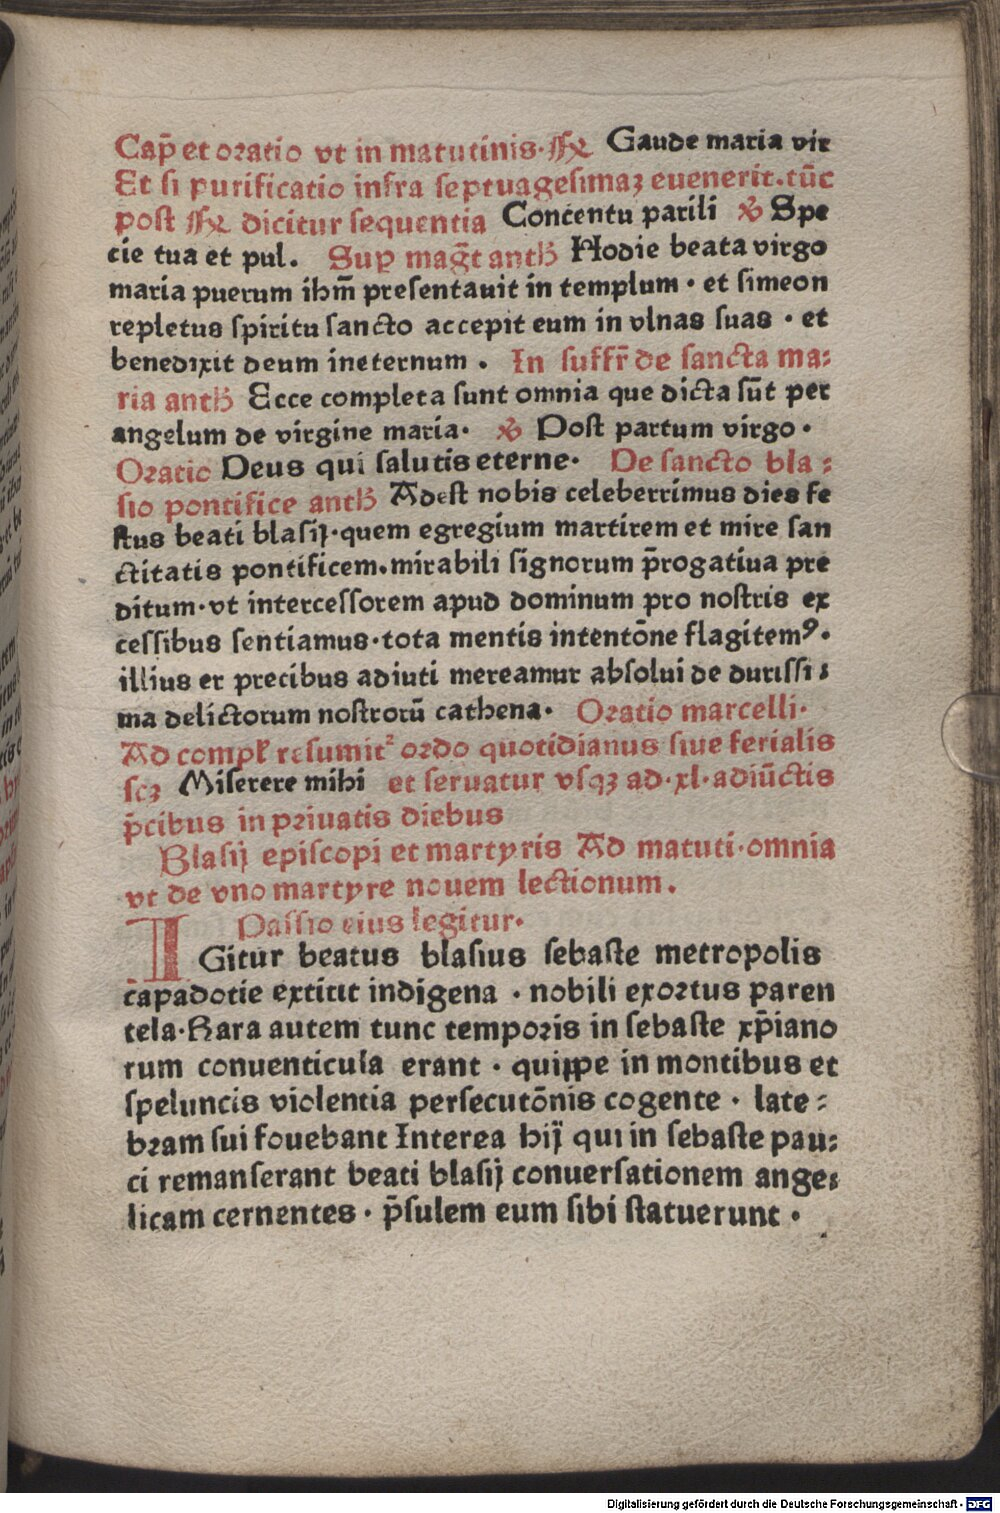 Cap̄ et oratio vt in matutinis · ℟ Gaude maria vir
Et si purificatio infra septuagesimaꝫ euenerit. tūc
post ℟ dicitur sequentia Concentu parili ℣ Spe
cie tua et pul. Suꝑ mag̅t antħ Hodie beata virgo
maria puerum ihm̄ presentauit in templum · et simeon
repletus spiritu sancto accepit eum in vlnas suas · et
benedixit deum ineternum . In suffr̄ de sancta ma⸗
ria antħ Ecce completa sunt omnia que dicta sūt per
angelum de virgine maria · ℣ Post partum virgo ·
Oratio Deus qui salutis eterne · De sancto bla⸗
sio pontifice antħ Adest nobis celeberrimus dies fe
stus beati blasij · quem egregium martirem et mire san
ctitatis pontificem . mirabili signorum p̄rogatiua pre
ditum · vt intercessorem apud dominum pro nostris ex
cessibus sentiamus · tota mentis intentōne flagitemꝰ ·
illius et precibus adiuti mereamur absolui de durissi⸗
ma delictorum nostrorū cathena · Oratio marcelli ·
Ad compl̄ resumit² ordo quotidianus siue ferialis
scꝫ Miserere mihi et seruatur vsqꝫ ad · xl · adiūctis
p̄cibus in priuatis diebus
Blasij episcopi et martyris Ad matuti · omnia
vt de vno martyre nouem lectionum .
Passio eius legitur ·
IGitur beatus blasius sebaste metropolis
capadocie extitit indigena · nobili exortus paren
tela · Rara autem tunc temporis in sebaste xp̄iano
rum conuenticula erant · quippe in montibus et
speluncis violentia persecutōnis cogente · late⸗
bram sui fouebant Interea hij qui in sebaste pau⸗
ci remanserant beati blasij conuersationem ange⸗
licam cernentes · p̄sulem eum sibi statuerunt ·
Digitalisierung gefördert durch die Deutsche Forschungsgemeinschaft - DFG